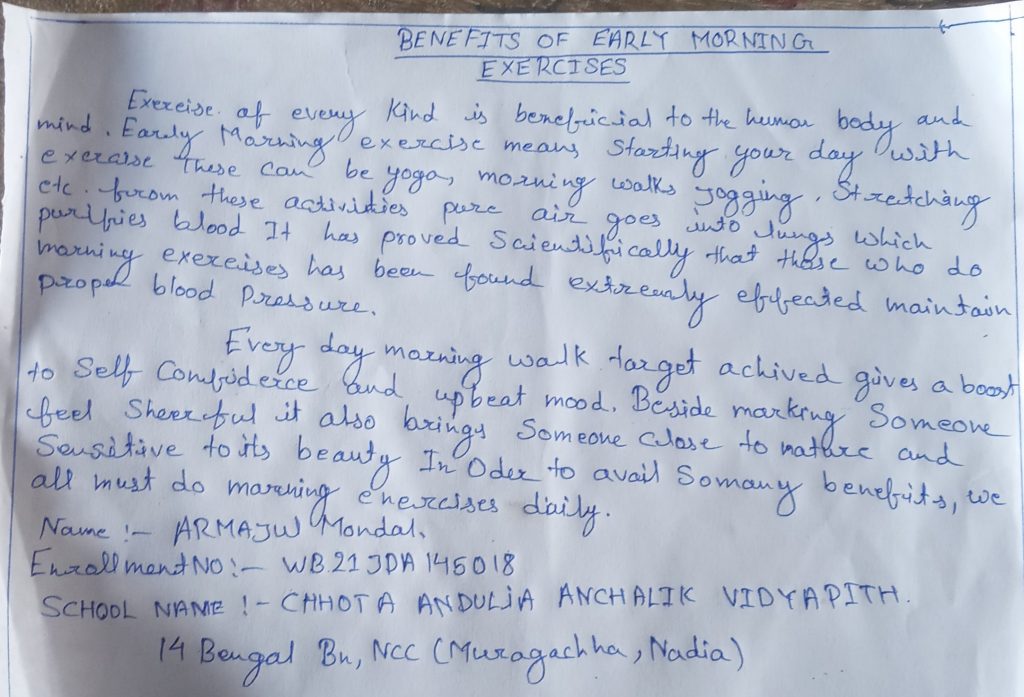 BENEFITS OF EARLY MORNING
EXERCISES
Exercise of every kind is beneficial to the human body and
mind. Early Morning exercise means Starting your day with
exercise These can be yoga, morning walks jogging, Stretching
etc. from these activities pure air goes into lungs which
purifies blood It has proved Scientifically that those who do
morning exercises has been found extreemly effected maintain
proper blood Pressure.
Every day morning walk target achived gives a boost
to Self Confidence and upbeat mood. Beside making Someone
feel Sheerful it also brings Someone Close to nature and
Sensitive to its beauty In Oder to avail Somany benefits, we
all must do morning enercises daily.
Name :- ARMAJW Mondal.
Enrollment NO :- WB.21 JDA 145018
SCHOOL NAME :- CHHOTA ANDULIA ANCHALIK VIDYAPITH.
14 Bengal Bn, NCC (Muragachha, Nadia)